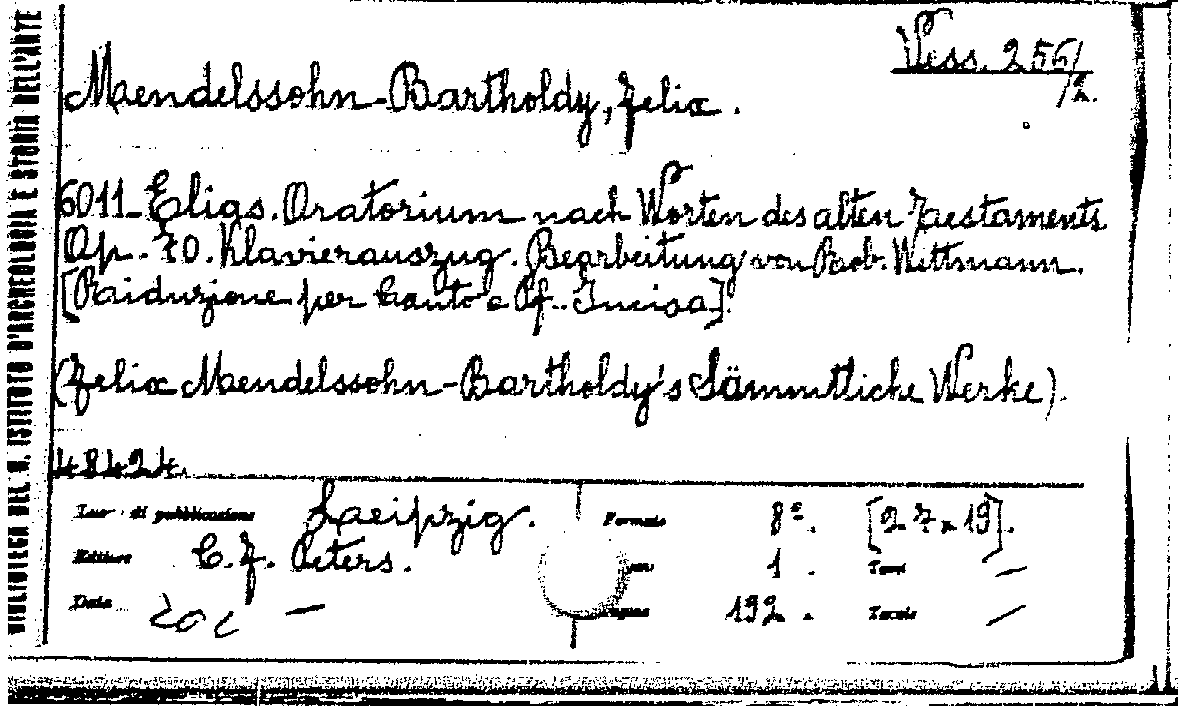 BIBLIOTECA DEL R. ISTITUTO D'ARCHEOLOGIA E STORIA DELL'ARTE
Vess. 256/
/2.
Mendelssohn-Bartholdy, Felix.
6011_Elias. Oratorium nach Worten des alten Testaments
Op. 70. Klavierauszug. Bearbeitung von Rob. Wittmann.
[Riduzione per Canto e Pf. Incisa].
(Felix Mendelssohn-Bartholdy's Sämmtliche Werke).
48424.
Luogo di pubblicazione Leipzig. Formato 8º. [27x19].
Editore C. F. Peters. 1. Tavv. —
Data — Pagine 192. Tavole —